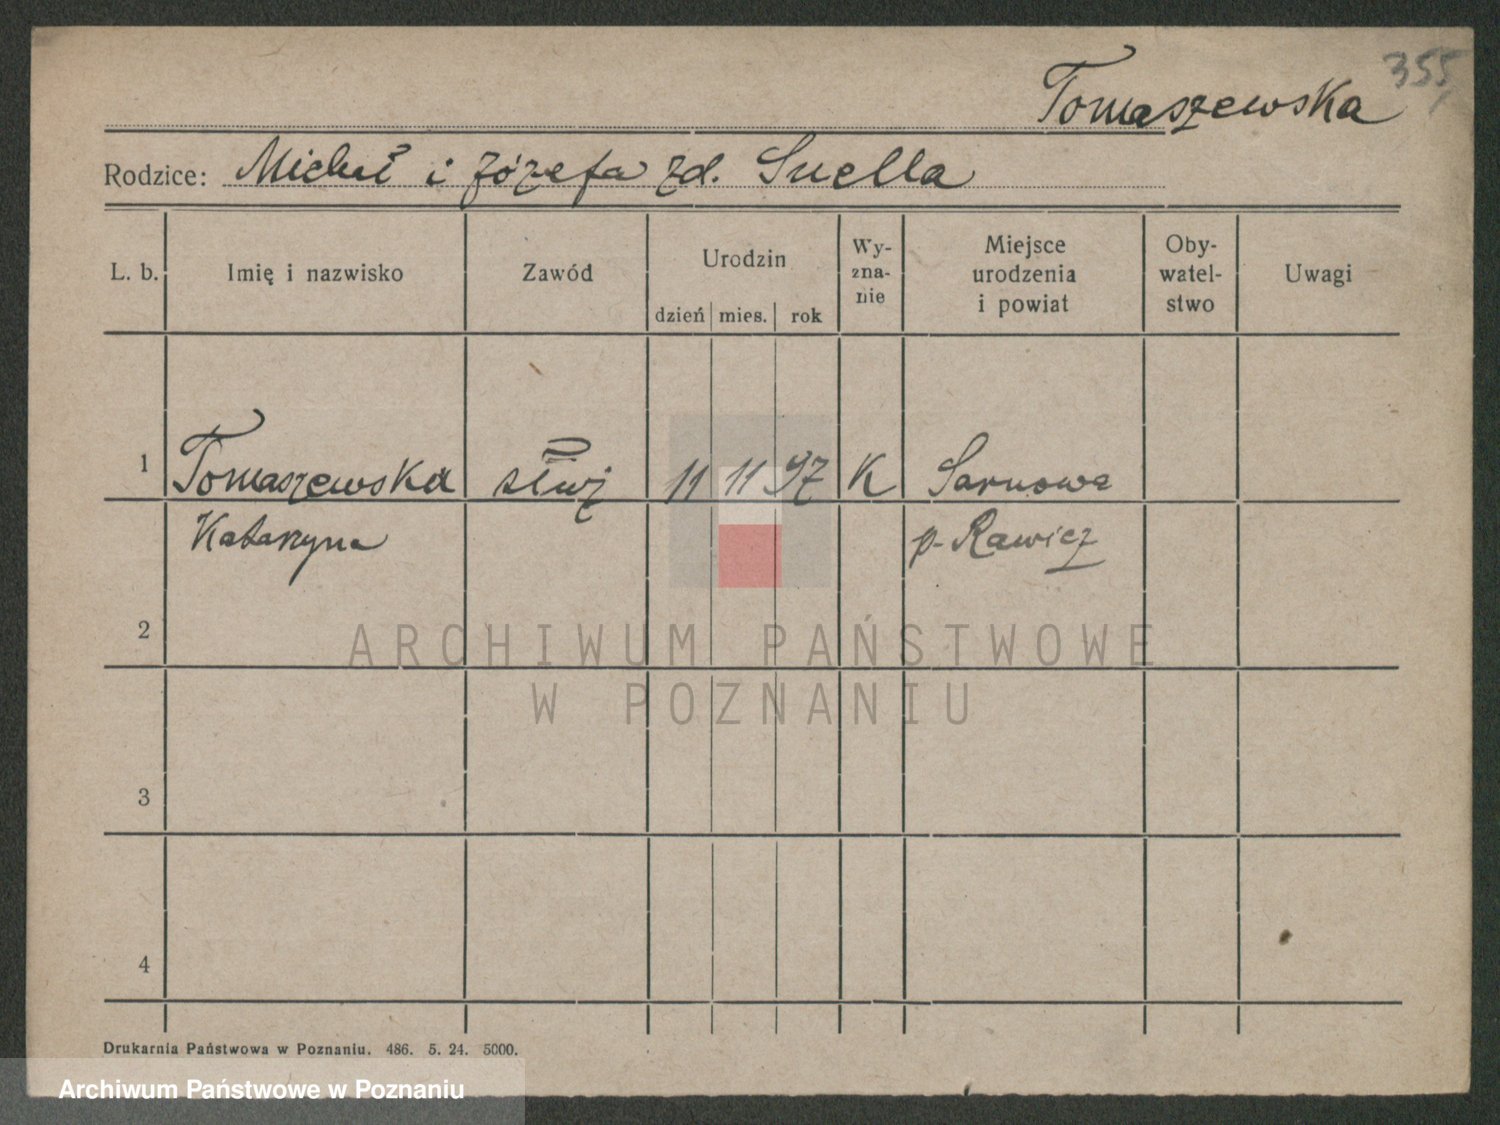 355
Tomaszewska
Rodzice: Michał i Józefa zd. Snella
L. b. Imię i nazwisko Zawód Urodzin dzień mies. rok Wy-zna-nie Miejsce urodzenia i powiat Oby-watel-stwo Uwagi
1 Tomaszewska służ 11 11 97 K Sarnowa
Katarzyna p. Rawicz
2
3
4
Drukarnia Państwowa w Poznaniu. 486. 5. 24. 5000.
ARCHIWUM PAŃSTWOWE
W POZNANIU
Archiwum Państwowe w Poznaniu